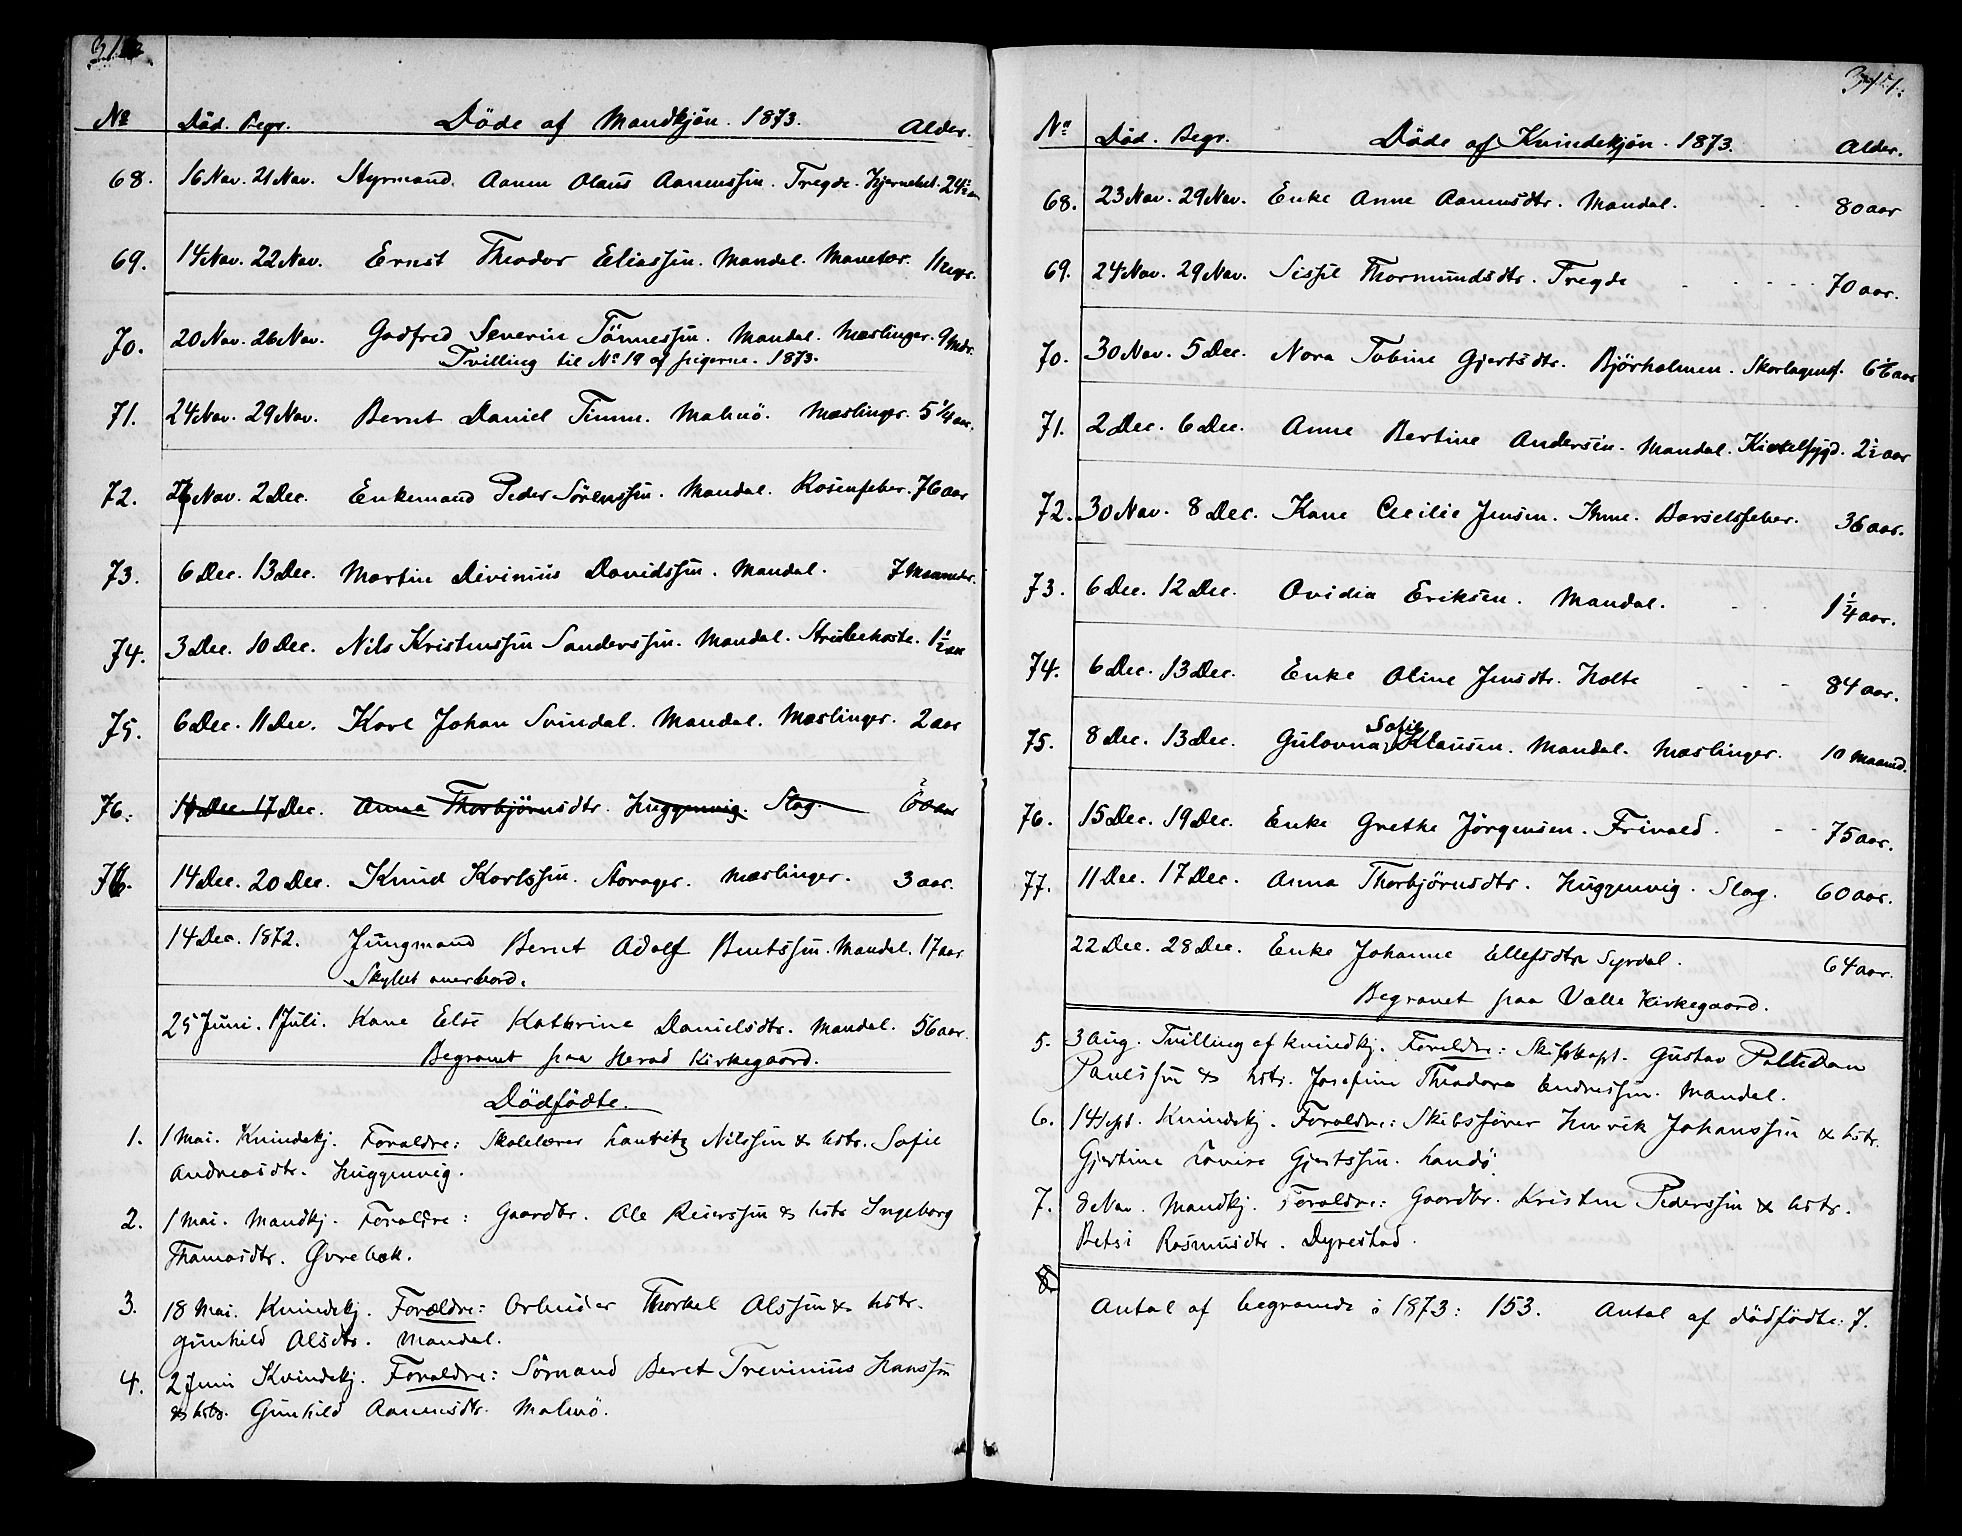 No Död. Begr. Döde af Mandkjön. 1873. Alder.
68. 16 Nov. 21 Nov. Styrmand. Aanen Olaus Aanenssen. Tregde. Hjernebet. 24½ aar
69. 14 Nov. 22 Nov. Ernst Theodor Eliassen. Mandal. Mavetær.
70. 20 Nov. 26 Nov. Godfred Severin Tönnessen. Mandal. Mæslinger. 9 Mdr.
Tvilling til No 19 af pigerne. 1873.
71. 24 Nov. 29 Nov. Bernt Daniel Timm. Malmö. Mæslinger. 5 1/4 aar.
72. 26 Nov. 2 Dec. Enkemand Peder Sörenssen. Mandal. Rosenfeber. 76 aar
73. 6 Dec. 13 Dec. Martin Divinius Davidssen. Mandal. 7 Maaneder.
74. 3 Dec. 10 Dec. Nils Kristenssen Sanderssen. Mandal. Strubehoste. 1½ aar
75. 6 Dec. 11 Dec. Karl Johan Svindal. Mandal. Mæslinger. 2 aar
76. 11 Dec. 17 Dec. Anna Thorbjörnsdtr. Huggenvig. Slag. 60 aar
76. 14 Dec. 20 Dec. Knud Karlssen. Storager. Mæslinger. 3 aar.
14 Dec. 1872. Jungmand Bernt Adolf Bentssen. Mandal. 17 aar
Skyllet overbord.
25 Juni. 1 Juli. Kone Else Kathrine Danielsdtr. Mandal. 56 aar.
Begravet paa Herad Kirkegaard.
Dödfödte.
1. 1 Mai. Kvindekj. Forældre: Skolelærer Lauritz Nilssen & hstr. Sofie
Andreasdtr. Huggenvig.
2. 1 Mai. Mandkj. Forældre: Gaardbr. Ole Reierssen & hstr Ingeborg
Thomasdtr. Øvrebæk.
3. 18 Mai. Kvindekj. Forældre: Arbeider Thorkel Olssen & hstr.
Gunhild Olsdtr. Mandal.
4. 2 Juni Kvindekj. Forældre: Sömand Beret Trevinius Hanssen
& hstr. Gunhild Aanensdtr. Malmö.
No Död. Begr. Döde af Kvindekjön. 1873. Alder.
68. 23 Nov. 29 Nov. Enke Anne Aanensdtr. Mandal. 80 aar
69. 24 Nov. 29 Nov. Sissel Thormundsdtr. Tregde 70 aar.
70. 30 Nov. 5 Dec. Nora Tobine Gjertsdtr. Bjørholmen. Skarlagensf. 6½ aar
71. 2 Dec. 6 Dec. Anne Bertine Andersen. Mandal. Kirtelsygd. 2½ aar
72. 30 Nov. 8 Dec. Kone Cecilie Jensen. Ihme. Barselfeber. 36 aar.
73. 6 Dec. 12 Dec. Ovidia Eriksen. Mandal. 1¼ aar.
74. 6 Dec. 13 Dec. Enke Oline Jensdtr. Holte 84 aar.
75. 8 Dec. 13 Dec. Gulovna Sofie Klausen. Mandal. Mæslinger. 10 Maaned.
76. 15 Dec. 19 Dec. Enke Grethe Jörgensen. Frivold. 75 aar.
77. 11 Dec. 17 Dec. Anna Thorbjörnsdtr. Huggenvig. Slag. 60 aar.
22 Dec. 28 Dec. Enke Johanne Ellefsdtr Syrdal. 64 aar.
Begravet paa Valle Kirkegaard.
5. 3 Aug. Tvilling af kvindkj. Forældre: Skibskapt. Gustav Palludan
Paulssen & hstr. Josefine Theodora Endressen. Mandal.
6. 14 Sept. Kvindekj. Forældre: Skibsförer Henrik Johanssen & hstr.
Gjertine Lovise Gjertssen. Landö.
7. 8 Nov. Mandkj. Forældre: Gaardbr. Kristen Pederssen & hstr.
Betsi Rasmusdtr. Dyrestad.
Antal af begravede i 1873: 153. Antal af dödfödte: 7.